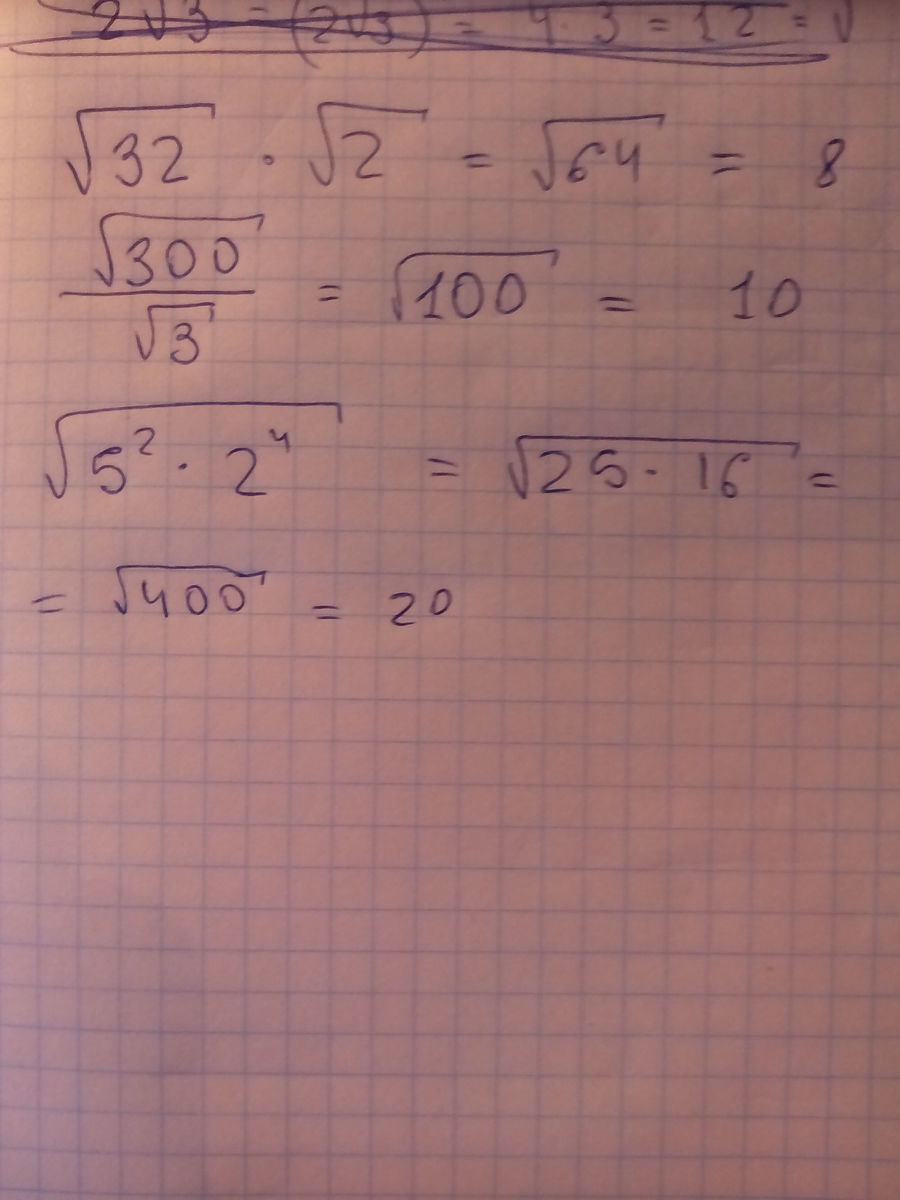 2√3 = (2√3) = 4·3 = 12 = √
√32 · √2 = √64 = 8
√300 / √3 = √100 = 10
√5² · 2⁴ = √25 · 16 =
= √400 = 20